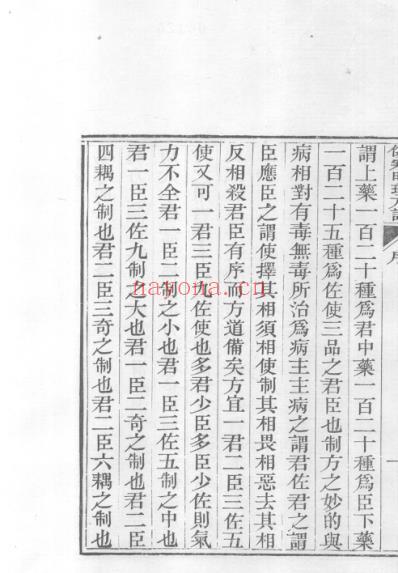 序
一
謂上藥一百二十種爲君中藥一百二十種爲臣下藥
一百二十五種爲佐使三品之君臣也制方之妙的與
病相對有毒無毒所治爲病主主病之謂君佐君之謂
臣應臣之謂使擇其相須相使制其相畏相惡去其相
反相殺君臣有序而方道備矣方宜一君二臣三佐五
使又可一君三臣九佐使也多君少臣多臣少佐則氣
力不全君一臣二制之小也君一臣三佐五制之中也
君一臣三佐九制之大也君一臣二奇之制也君二臣
四耦之制也君二臣三奇之制也君二臣六耦之制也
nayona.cn